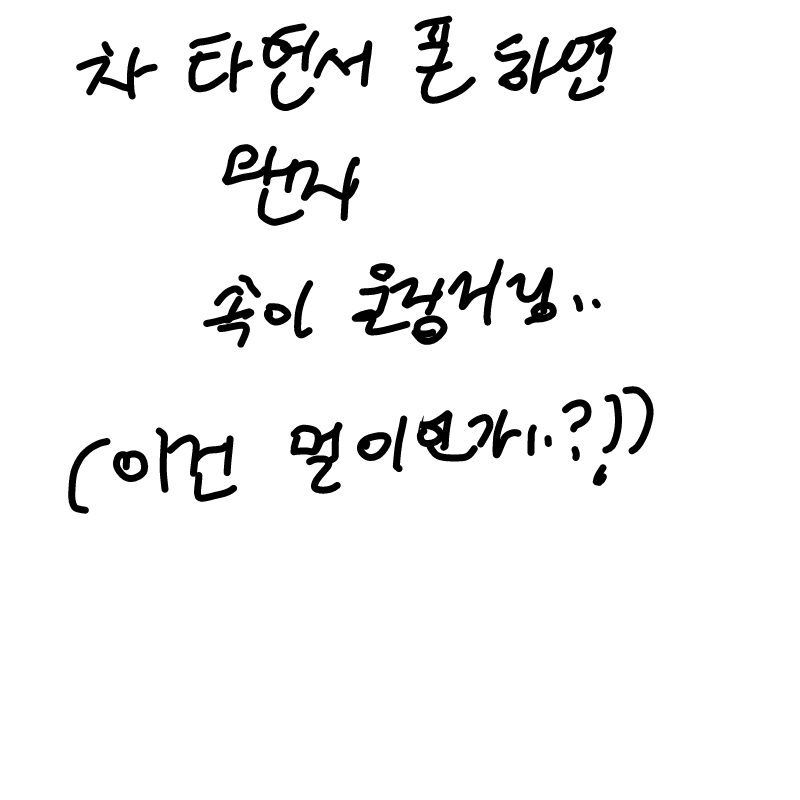 차 타면서 폰 하면
속이 울렁거림..
(이건 멀미인가..?!))